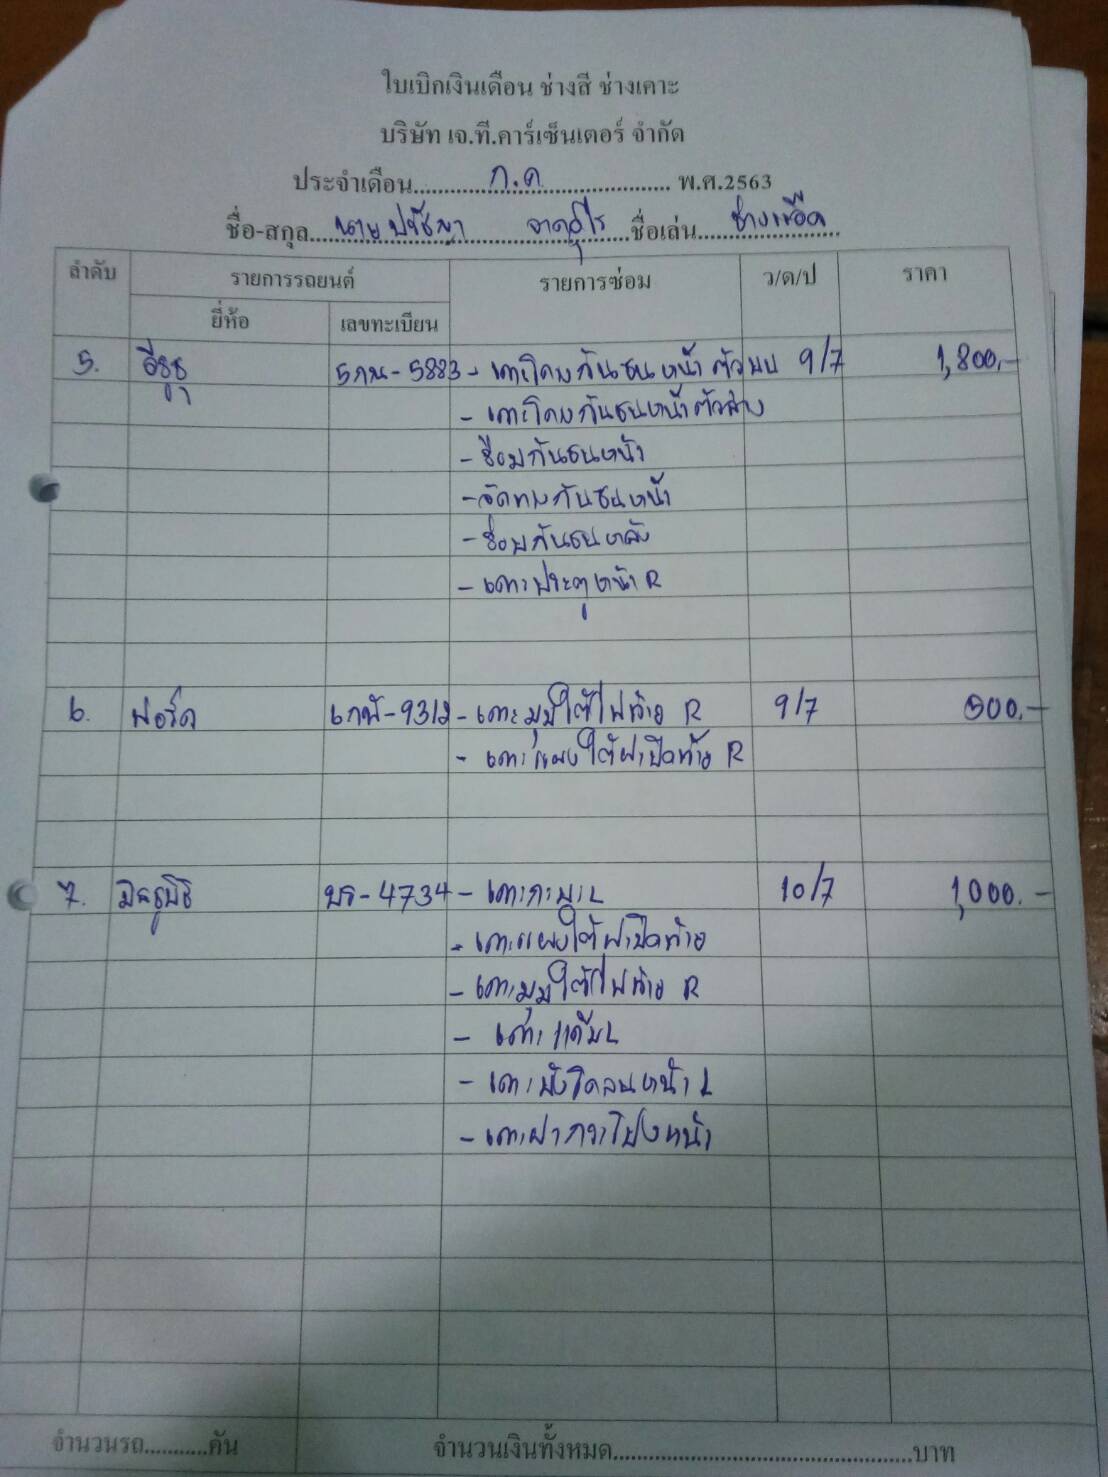 ใบเบิกเงินเดือน ช่างสี ช่างเคาะ
บริษัท เจ.ที.คาร์เซ็นเตอร์ จำกัด
ประจำเดือน ก.ค พ.ศ.2563
ชื่อ-สกุล นาย ปรัชญา ชื่อเล่น
ลำดับ รายการรถยนต์ รายการซ่อม ว/ด/ป ราคา
ยี่ห้อ เลขทะเบียน
5. อีซูซุ 5กน-5883 - เคาะโครงกันชนหน้า ตัวบน 9/7 1,800.-
- เคาะโครงกันชนหน้าตัวล่าง
- ซ่อมกันชนหน้า
- จัดทรงกันชนหน้า
- ซ่อมกันชนหลัง
- เคาะประตูหน้า R
6. ฟอร์ด - เคาะมุมใต้ไฟท้าย R 9/7 00.-
- เคาะแผงใต้ฝาปิดท้าย R
7. มิตซูบิชิ บร-4734 - เคาะกะบะ L 10/7 1,000.-
- เคาะแผงใต้ฝาปิดท้าย
- เคาะมุมใต้ไฟท้าย R
- เคาะแก้ม L
- เคาะบังโคลนหน้า L
- เคาะฝากระโปรงหน้า
จำนวนรถ...........คัน จำนวนเงินทั้งหมด..................................................บาท